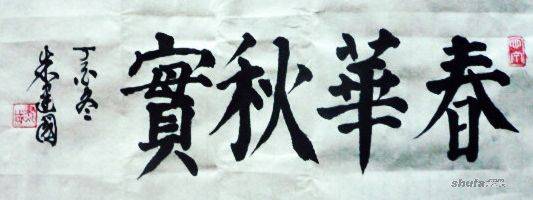 春華秋實
丁亥冬
朱建國
shufa